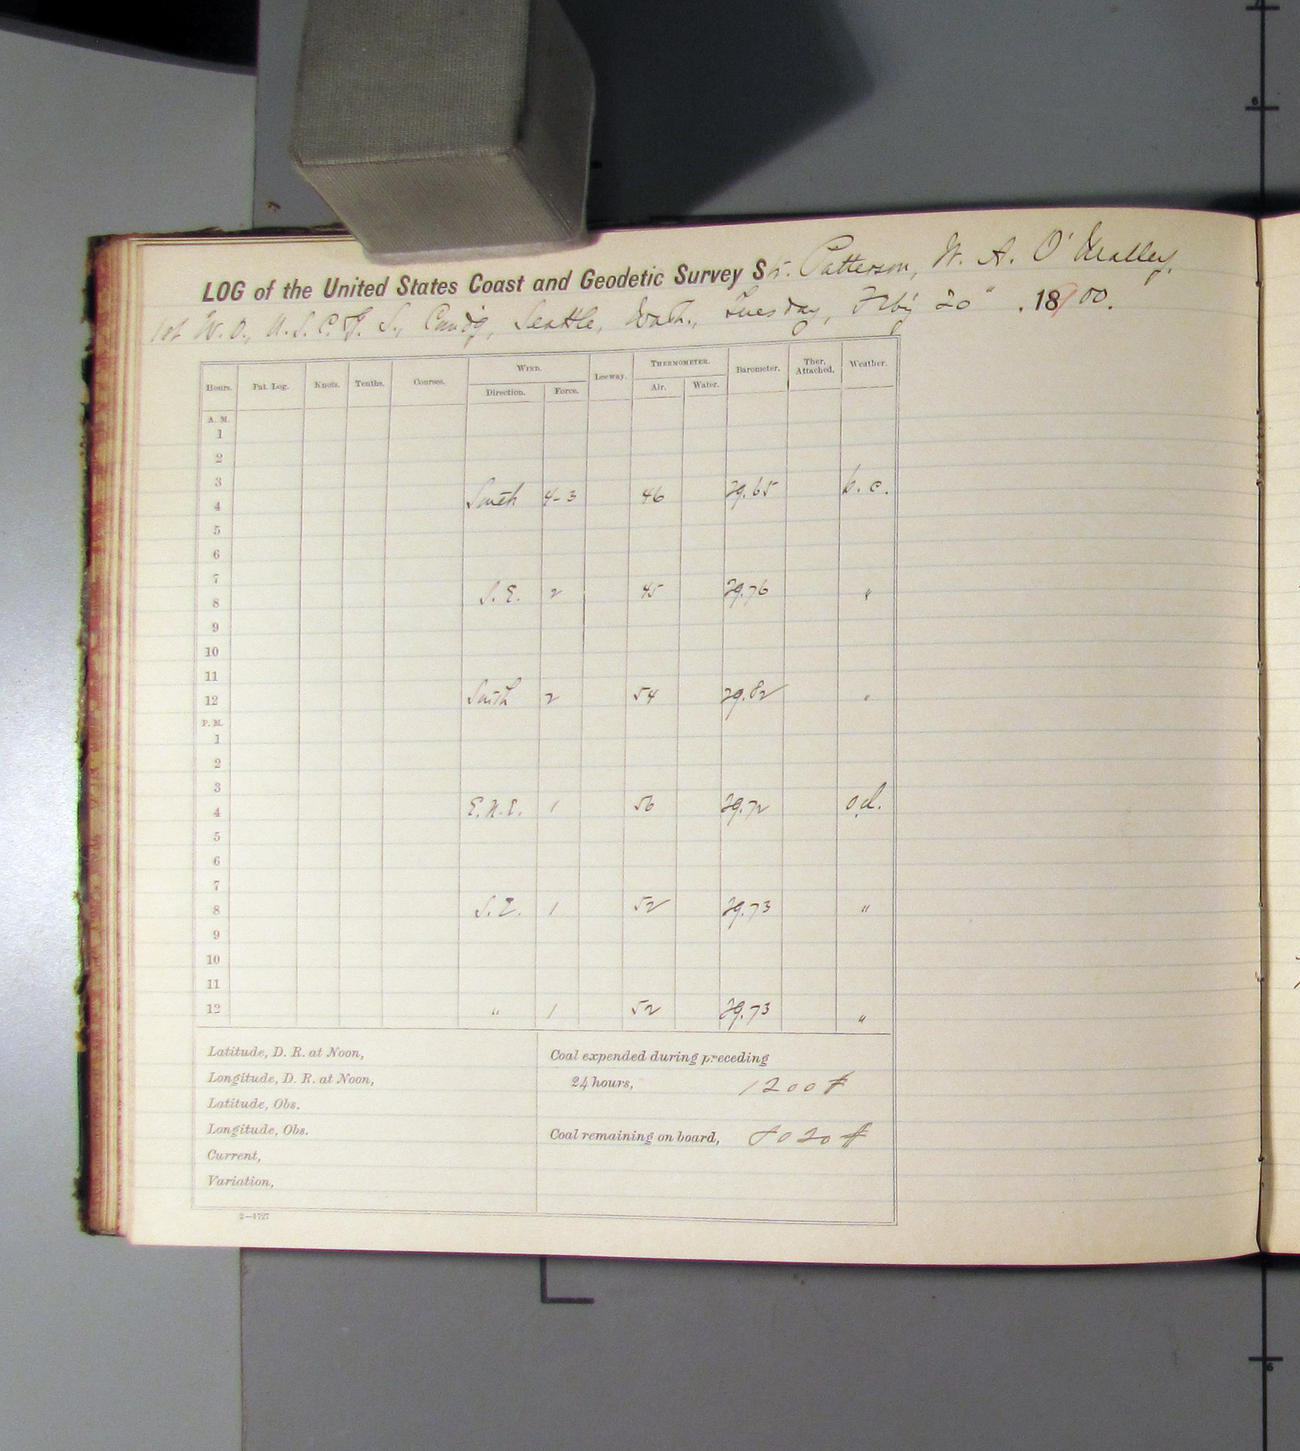 LOG of the United States Coast and Geodetic Survey Str. Patterson, W. A. O'Malley,
1st W.O., U.S.C.&G.S., Comdg, Seattle, Wash., Tuesday, Feby 20", 1900.
Hours. Pat. Log. Knots. Tenths. Courses. WIND. Leeway. THERMOMETER. Barometer. Ther. Attached. Weather.
Direction. Force. Air. Water.
A. M.
1
2
3
4 South 4-3 46 29.65 b.c.
5
6
7
8 S.E. 2 45 29.76 "
9
10
11
12 South 2 54 29.82 "
P. M.
1
2
3
4 E.N.E. 1 56 29.72 o.d.
5
6
7
8 S.E. 1 52 29.73 "
9
10
11
12 " 1 52 29.73 "
Latitude, D. R. at Noon,
Longitude, D. R. at Noon,
Latitude, Obs.
Longitude, Obs.
Current,
Variation,
Coal expended during preceding
24 hours, 1200 #
Coal remaining on board, 8020 #
2—4727
6
6